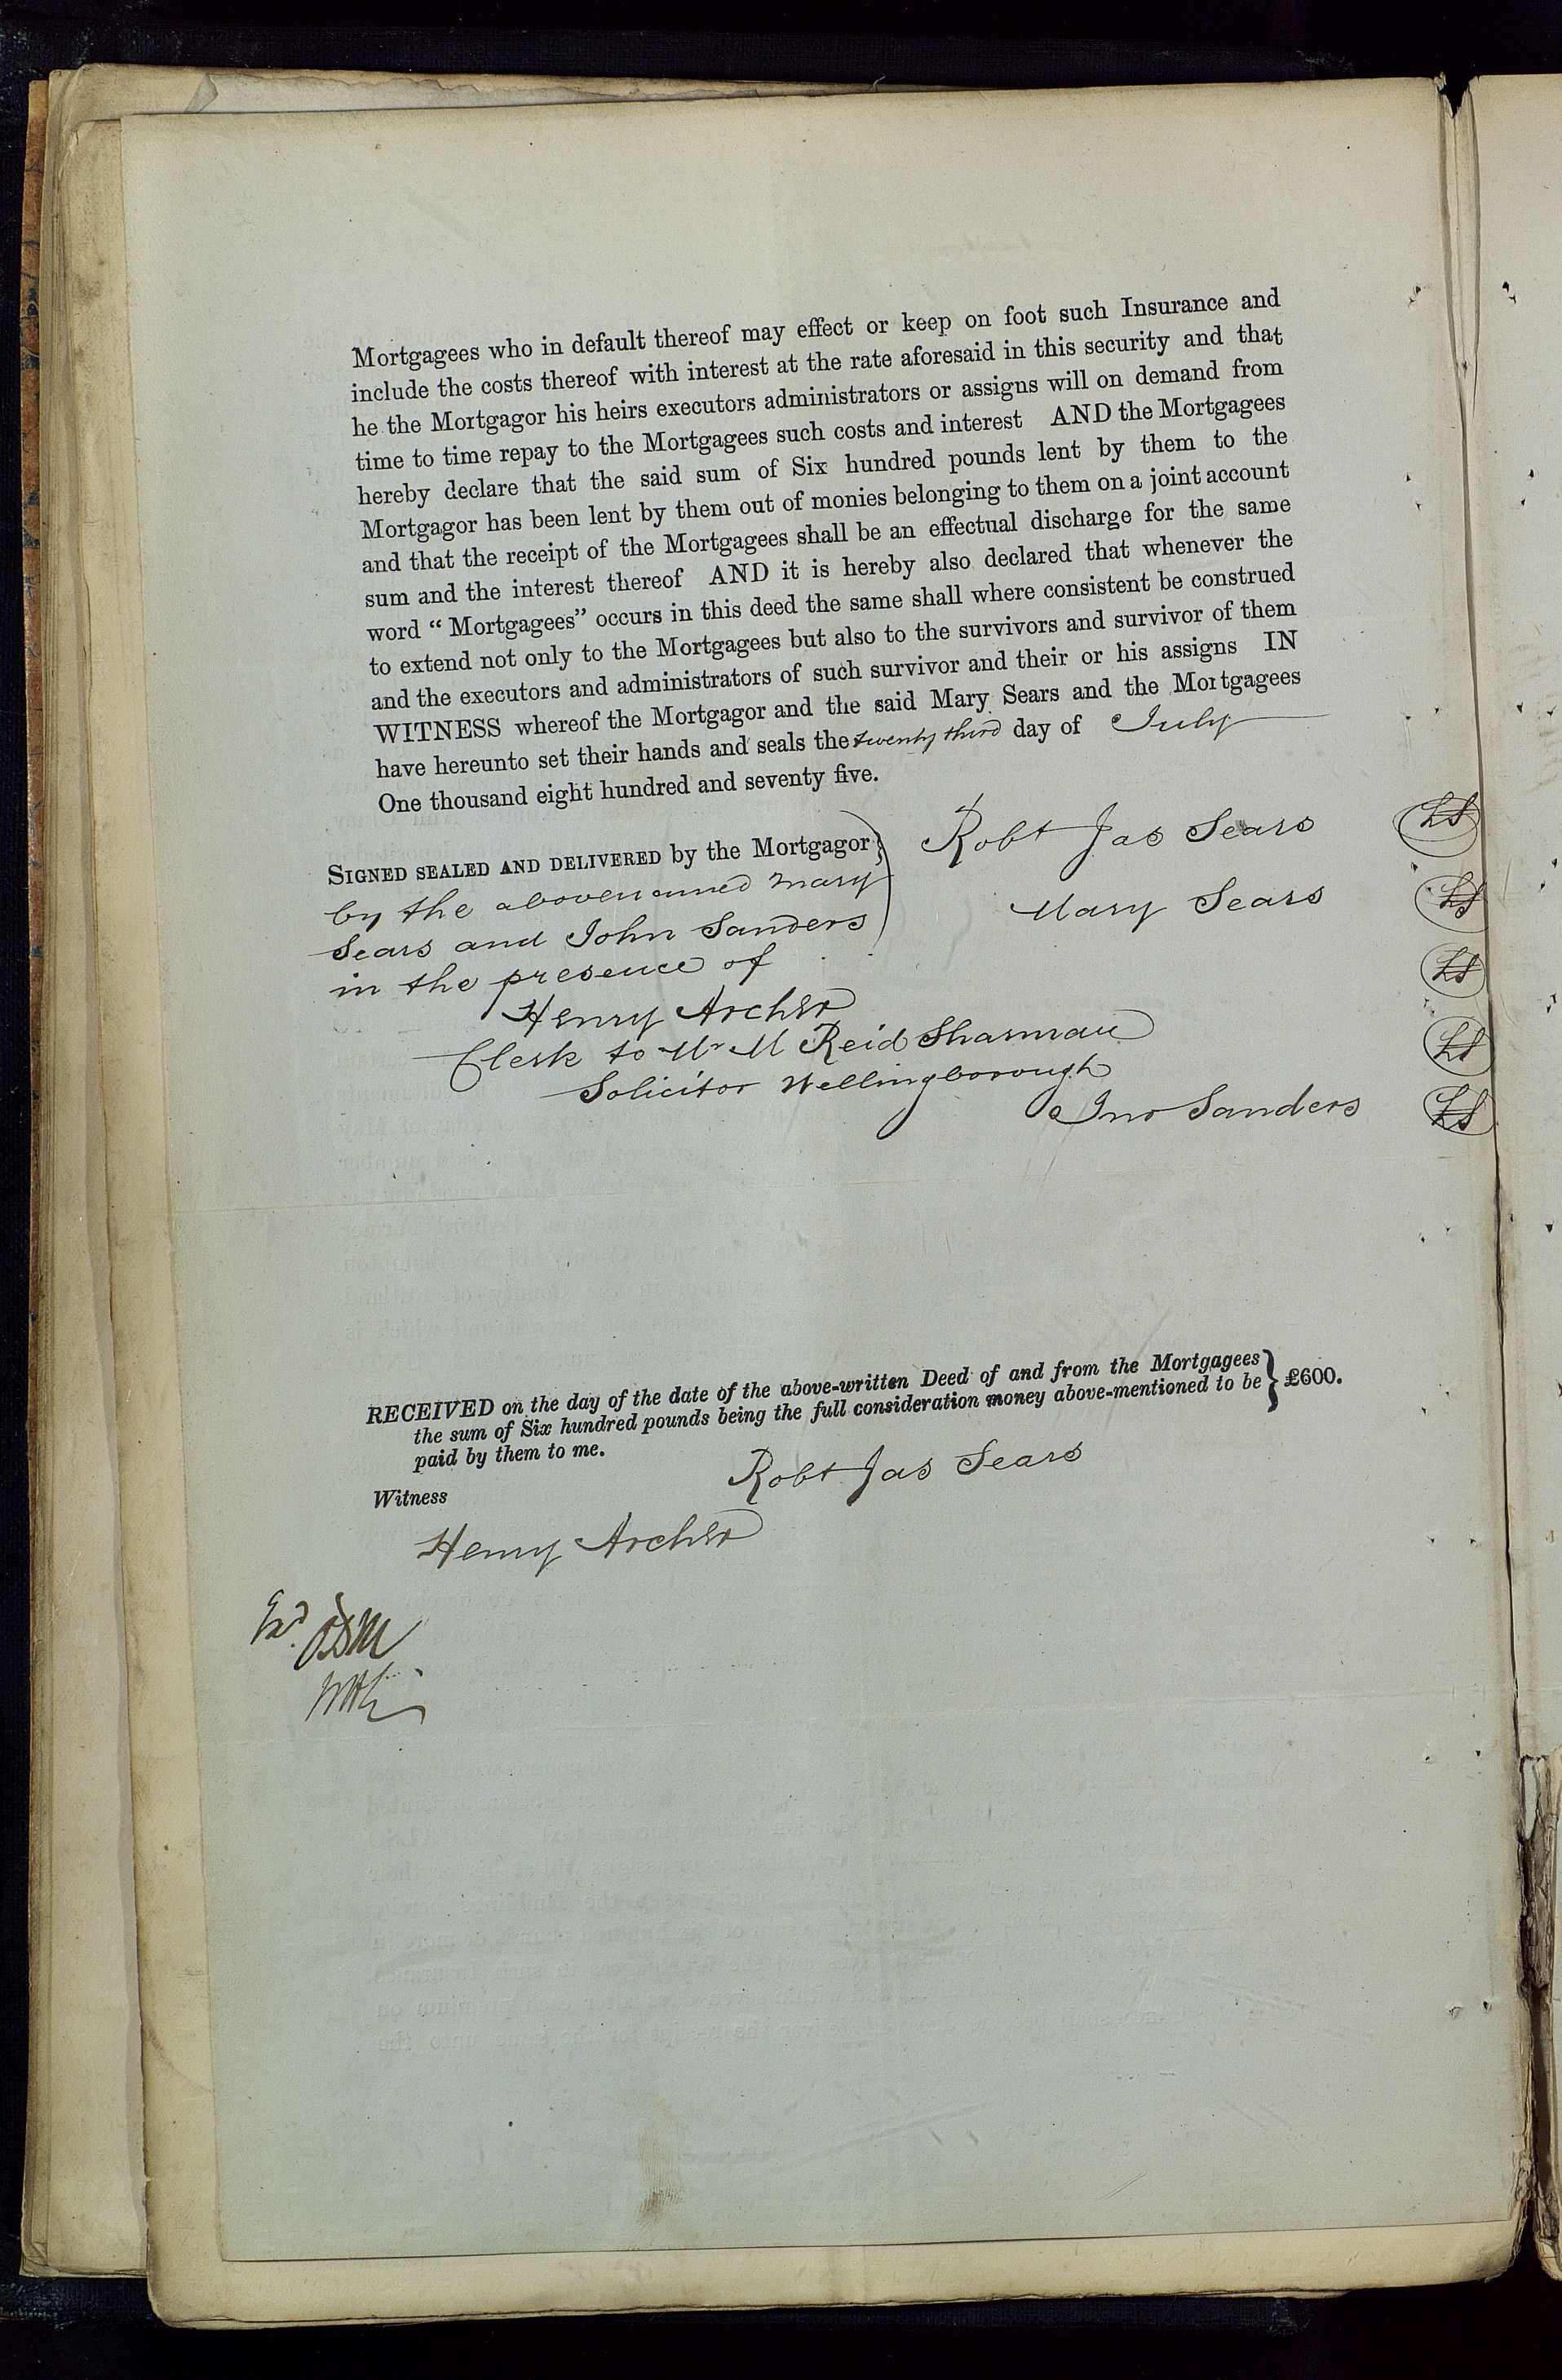 Mortgagees who in default thereof may effect or keep on foot such Insurance and
include the costs thereof with interest at the rate aforesaid in this security and that
he the Mortgagor his heirs executors administrators or assigns will on demand from
time to time repay to the Mortgagees such costs and interest AND the Mortgagees
hereby declare that the said sum of Six hundred pounds lent by them to the
Mortgagor has been lent by them out of monies belonging to them on a joint account
and that the receipt of the Mortgagees shall be an effectual discharge for the same
sum and the interest thereof AND it is hereby also declared that whenever the
word “ Mortgagees” occurs in this deed the same shall where consistent be construed
to extend not only to the Mortgagees but also to the survivors and survivor of them
and the executors and administrators of such survivor and their or his assigns IN
WITNESS whereof the Mortgagor and the said Mary Sears and the Mortgagees
have hereunto set their hands and seals the twenty third day of July
One thousand eight hundred and seventy five.
SIGNED SEALED AND DELIVERED by the Mortgagor
by the abovenamed Mary
Sears and John Sanders
in the presence of
Henry Archer
Clerk to Mr M Reid Sharman
Solicitor Wellingborough
Robt Jas Sears LS
Mary Sears LS
LS
LS
Jno Sanders LS
RECEIVED on the day of the date of the above-written Deed of and from the Mortgagees
the sum of Six hundred pounds being the full consideration money above-mentioned to be
paid by them to me.
£600.
Robt Jas Sears
Witness
Henry Archer
Exd.